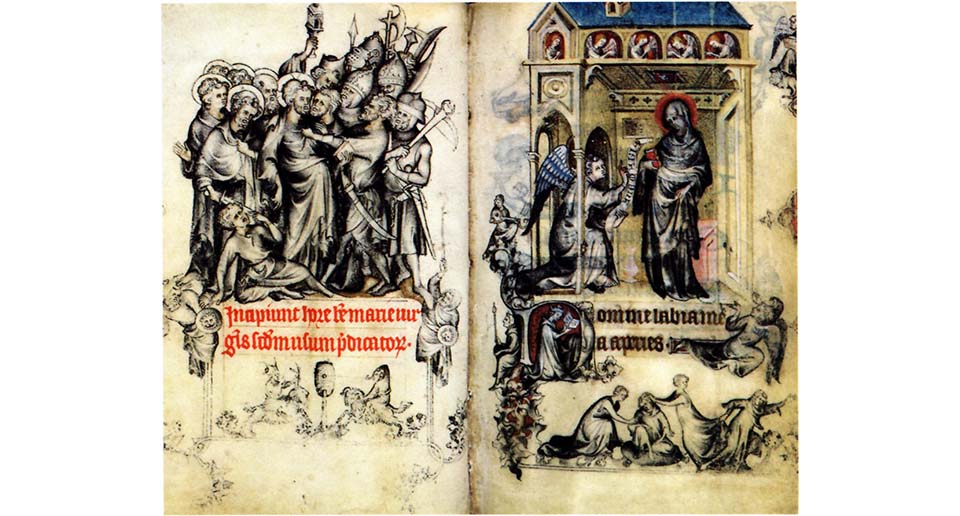 Incipiunt hore be marie uir
gis scdm usum pdicatoꝝ.
Domine labia me
a apies.